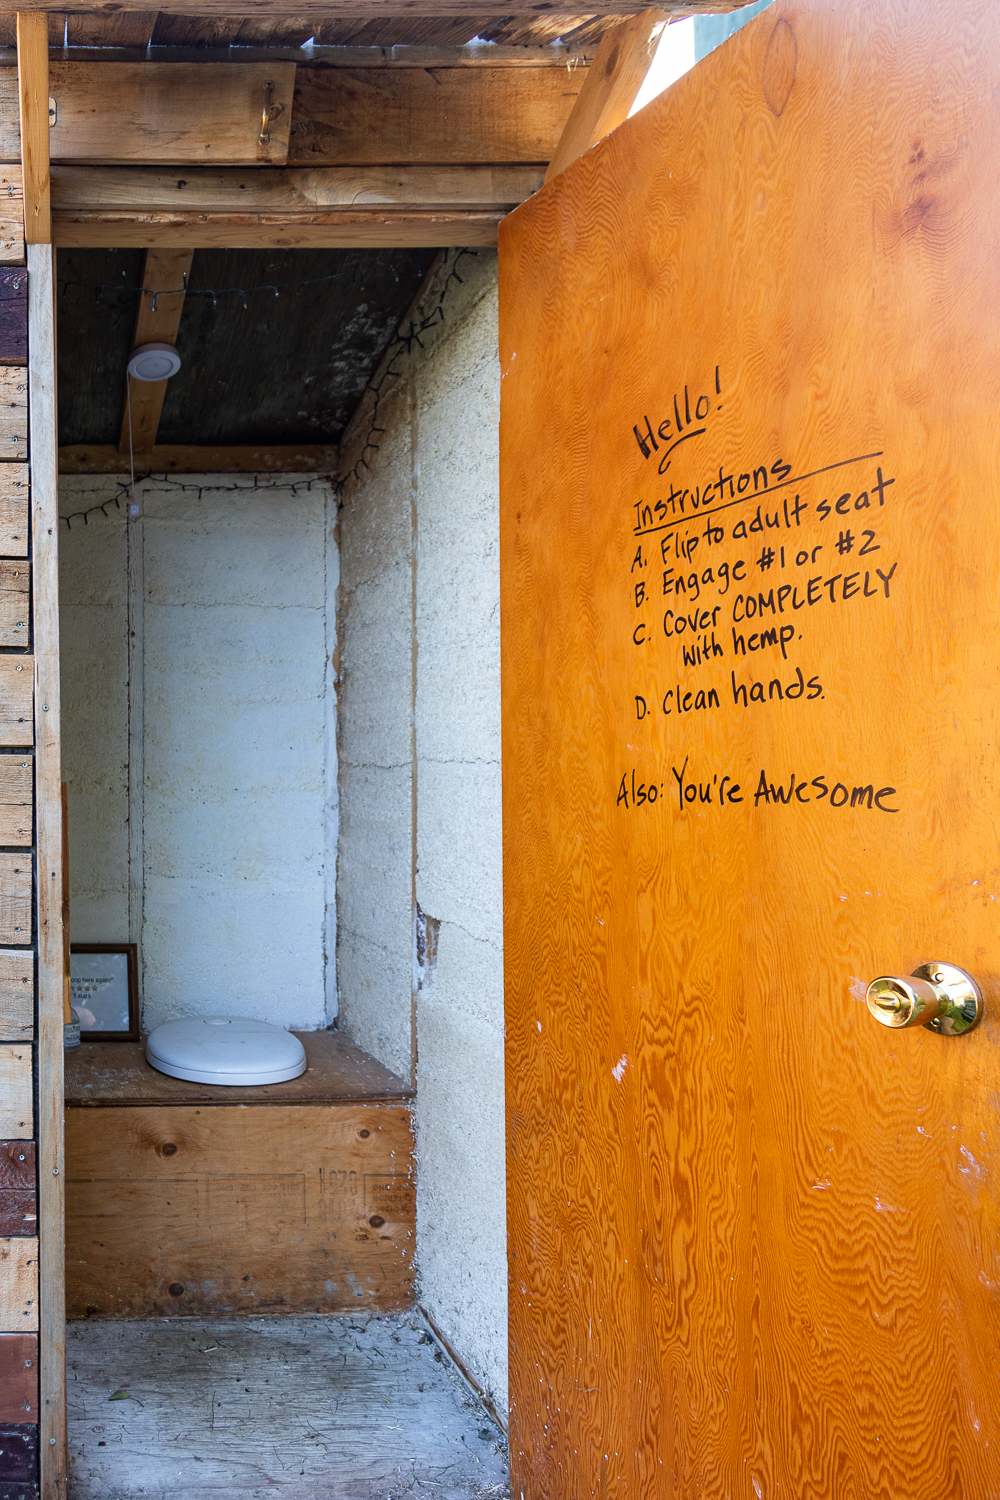 Hello!
Instructions
A. Flip to adult seat
B. Engage #1 or #2
C. Cover COMPLETELY
with hemp.
D. Clean hands.
Also: You're Awesome
here again!"